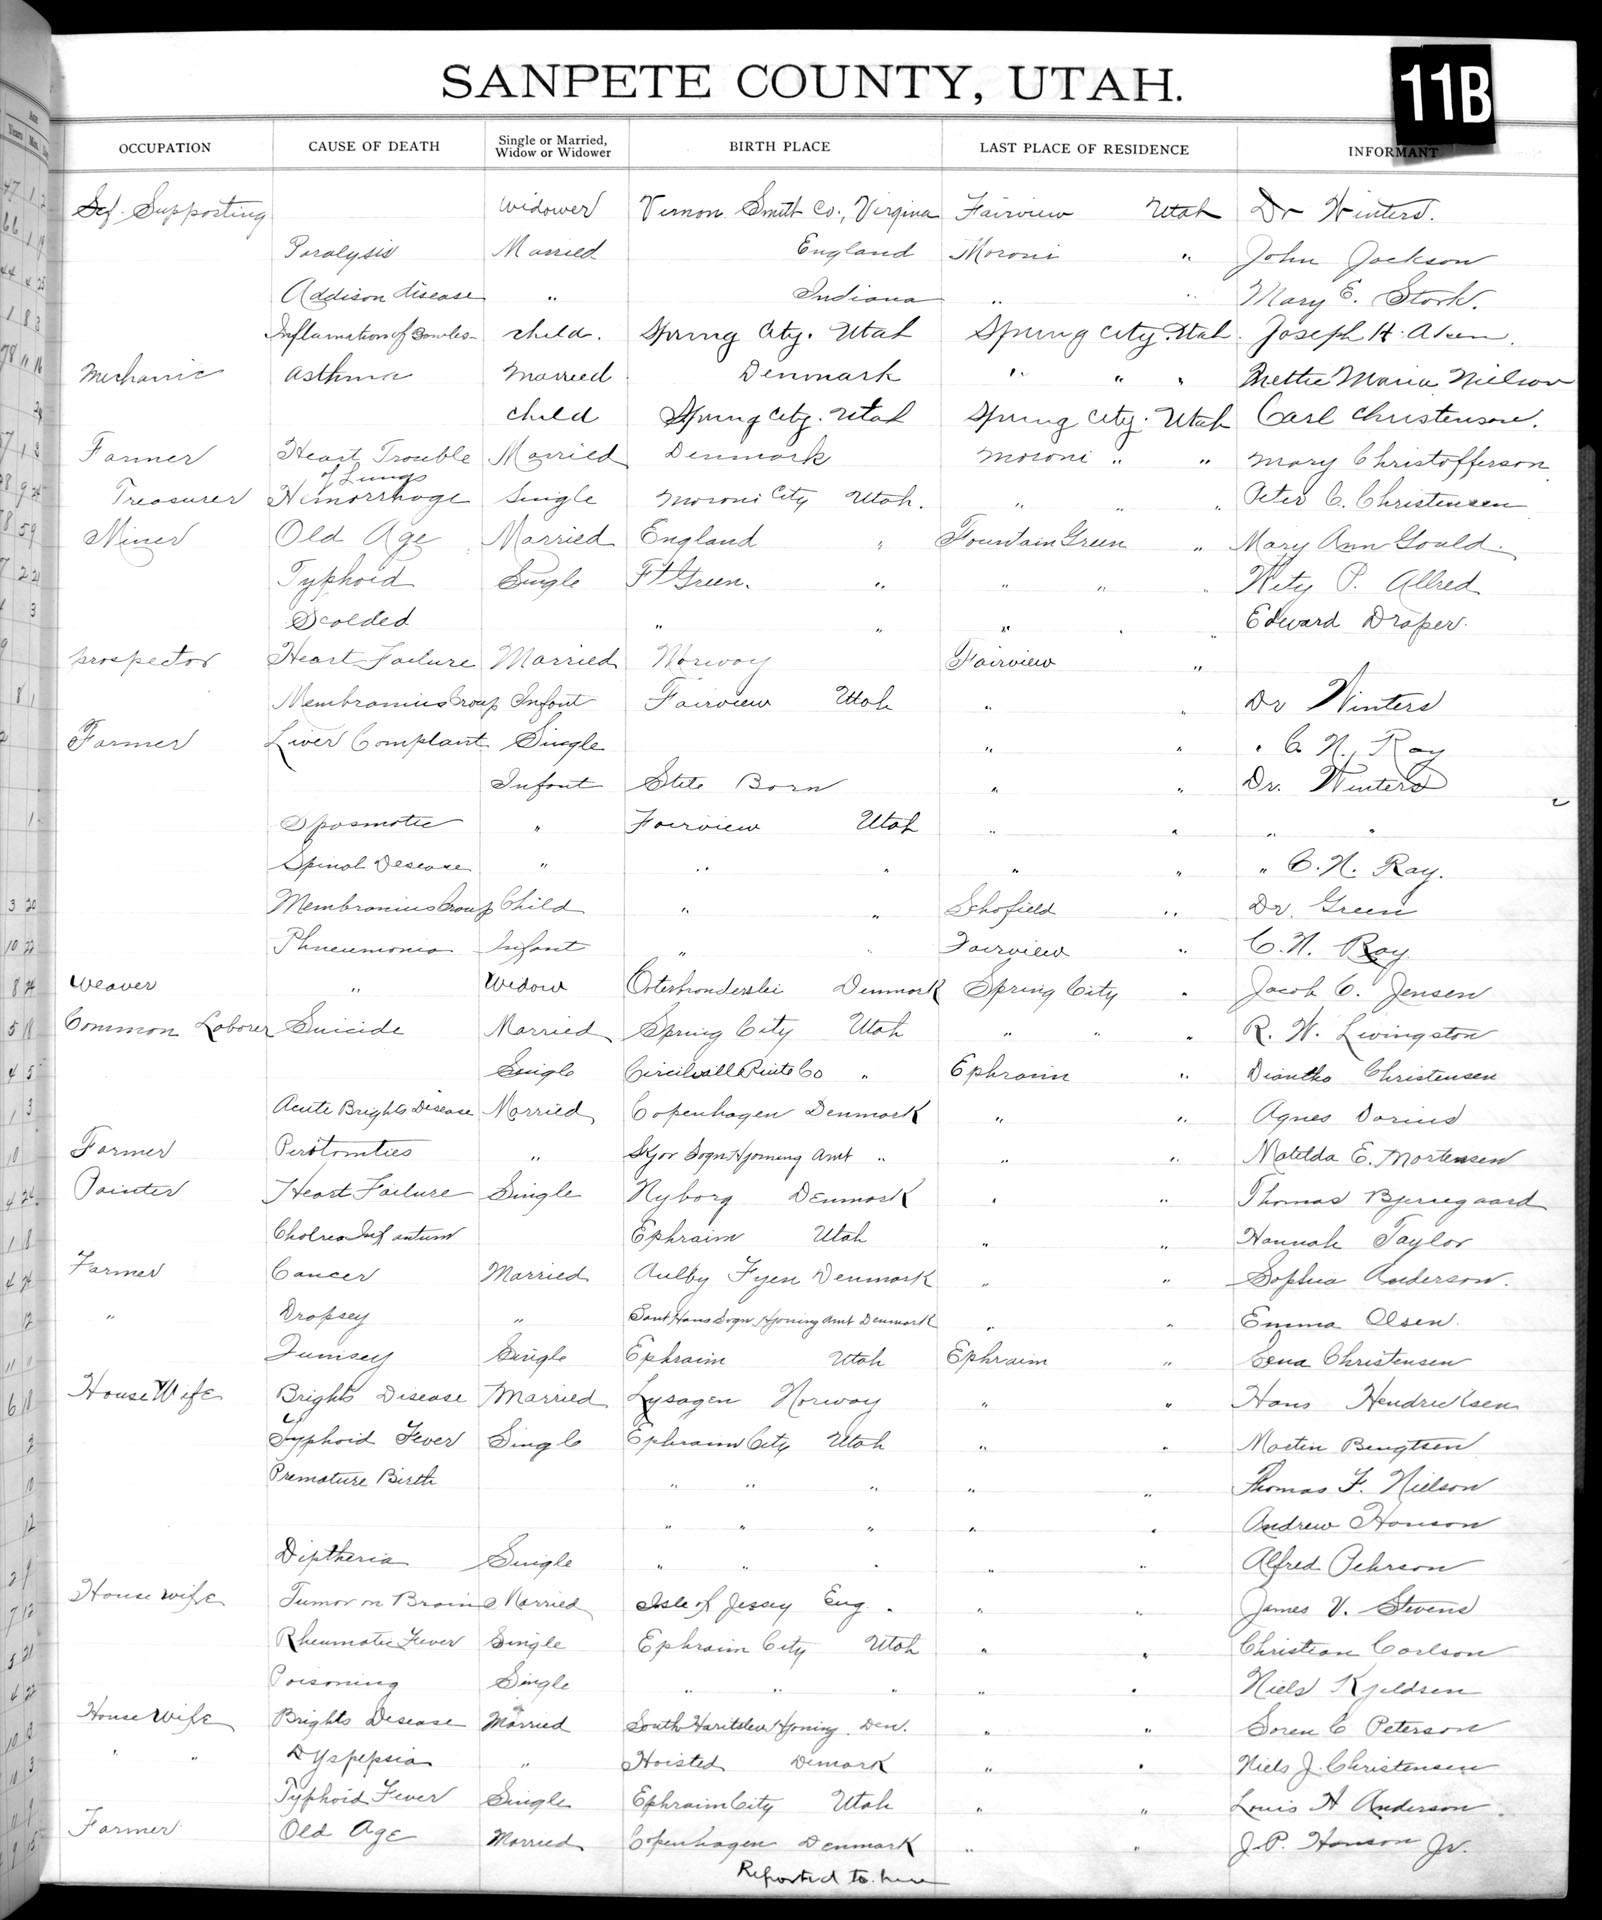 SANPETE COUNTY, UTAH.
11B
OCCUPATION CAUSE OF DEATH Single or Married, Widow or Widower BIRTH PLACE LAST PLACE OF RESIDENCE INFORMANT
Self. Supporting widower Vernon Smith Co., Virgina Fairview Utah Dr Winters.
Paralysis Married England Moroni " John Jackson
Addison disease " Indiana " " Mary E. Stork.
Inflamation of Bowles child. Spring City. Utah Spring City. Utah. Joseph H.
Mechanic asthma Married Denmark " " " Mettie Maria Nielson
child Spring City. Utah Spring City. Utah Carl Christenson.
Farmer Heart Trouble Married Denmark Moroni " " Mary Christofferson
of Lungs
Treasurer Hemorrhage Single Moroni City Utah. " " " Peter C. Christensen
Miner Old Age Married England " Fountain Green " Mary Ann Gould.
Typhoid Single Ft Green. " " " " P. Allred
Scolded " " " " " Edward Draper.
prospector Heart Failure Married Norway Fairview "
Membranius Croup Infant Fairview Utah " " Dr Winters
Farmer Liver Complaint Single " " " C. N. Ray
Infant Stite Born " " Dr. Winters
Spasmotic " Fairview Utah " " " "
Spinal Desease " " " " " " C. N. Ray.
Membranius Croup Child " " Schofield " Dr. Green
Phneumonia Infant " " Fairview " C. N. Ray
Weaver " Widow Denmark Spring City " Jacob C. Jensen
Common Laborer Suicide Married Spring City Utah " " " R. W. Livingston
Single Circilvill Piute Co " Ephraim " Diantha Christensen
Acute Brights Disease Married Copenhagen Denmark " " Agnes Dorius
Farmer Peritomties " Skjor Sogn Hjorning Amt " " " Matilda E. Mortensen
Painter Heart Failure Single Nyborg Denmark " " Thomas Bjerregaard
Cholrea Infantum Ephraim Utah " " Hannah Taylor
Farmer Cancer Married Aulby Fyen Denmark " " Sophia Anderson.
" Dropsey " Sant Hans Sogn Hjoning Amt Denmark " " Emma Olsen.
Single Ephraim Utah Ephraim " Lena Christensen
House Wife Brights Disease Married Lysagen Norway " " Hans Hendricksen
Typhoid Fever Single Ephraim City Utah " " Martin Bengtsen
Premature Birth " " " " " Thomas F. Nielson
" " " " " Andrew Hanson
Diptheria Single " " " " " Alfred Pehrson
House wife Tumor on Brain Married Isle of Jessey Eng. " " James V. Stevens
Rheumatic Fever Single Ephraim City Utah " " Christian Carlson
Poisoning Single " " " " " Niels Kjeldsen
House Wife Brights Desease Married South Haritslev Hjoning. Den. " " Soren C Peterson
" " Dyspepsia " Hoisted Demark " " Niels J. Christensen
Typhoid Fever Single Ephraim City Utah " " Louis H Anderson.
Farmer Old Age Married Copenhagen Denmark " " J. P. Hanson Jr.
Reported to here